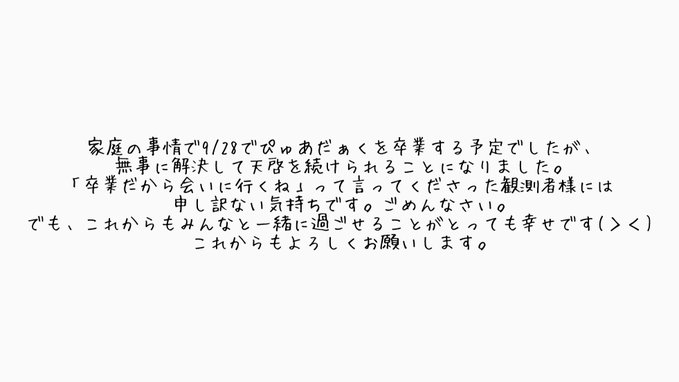 家庭の事情で9/28でぴゅあだぁくを卒業する予定でしたが、
無事に解決して天啓を続けられることになりました。
「卒業だから会いに行くね」って言ってくださった観測者様には
申し訳ない気持ちです。ごめんなさい。
でも、これからもみんなと一緒に過ごせることがとっても幸せです(＞＜)
これからもよろしくお願いします。